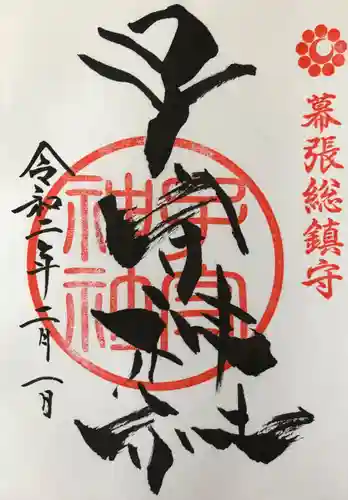 幕張総鎮守
子守神社
子守
神社
令和二年二月一日